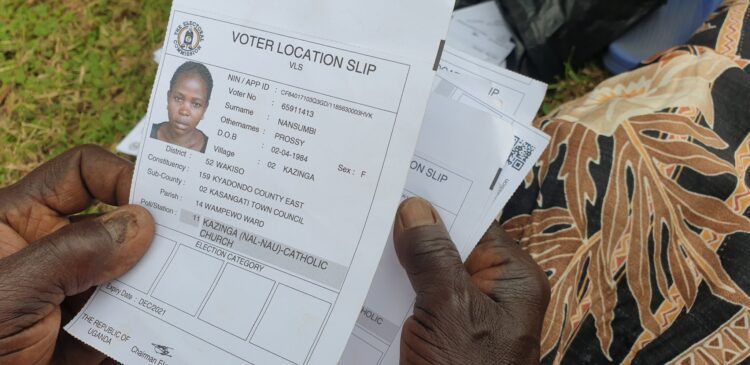 THE ELECTORAL COMMISSION
VOTER LOCATION SLIP
VLS
NIN / APP ID : CF84017103Q3GD/1185630003HVK
Voter No : 65911413
Surname : NANSUMBI
Othernames : PROSSY
D.O.B : 02-04-1984 Sex : F
Village : 02 KAZINGA
District : 52 WAKISO
Constituency : 159 KYADONDO COUNTY EAST
Sub-County : 02 KASANGATI TOWN COUNCIL
Parish : 14 WAMPEWO WARD
Poll/Station : 11 KAZINGA (NAL-NAU)-CATHOLIC
CHURCH
ELECTION CATEGORY
Expiry Date : DEC/2021
THE REPUBLIC OF
UGANDA
Chairman
SLIP
IP
CATHOLIC